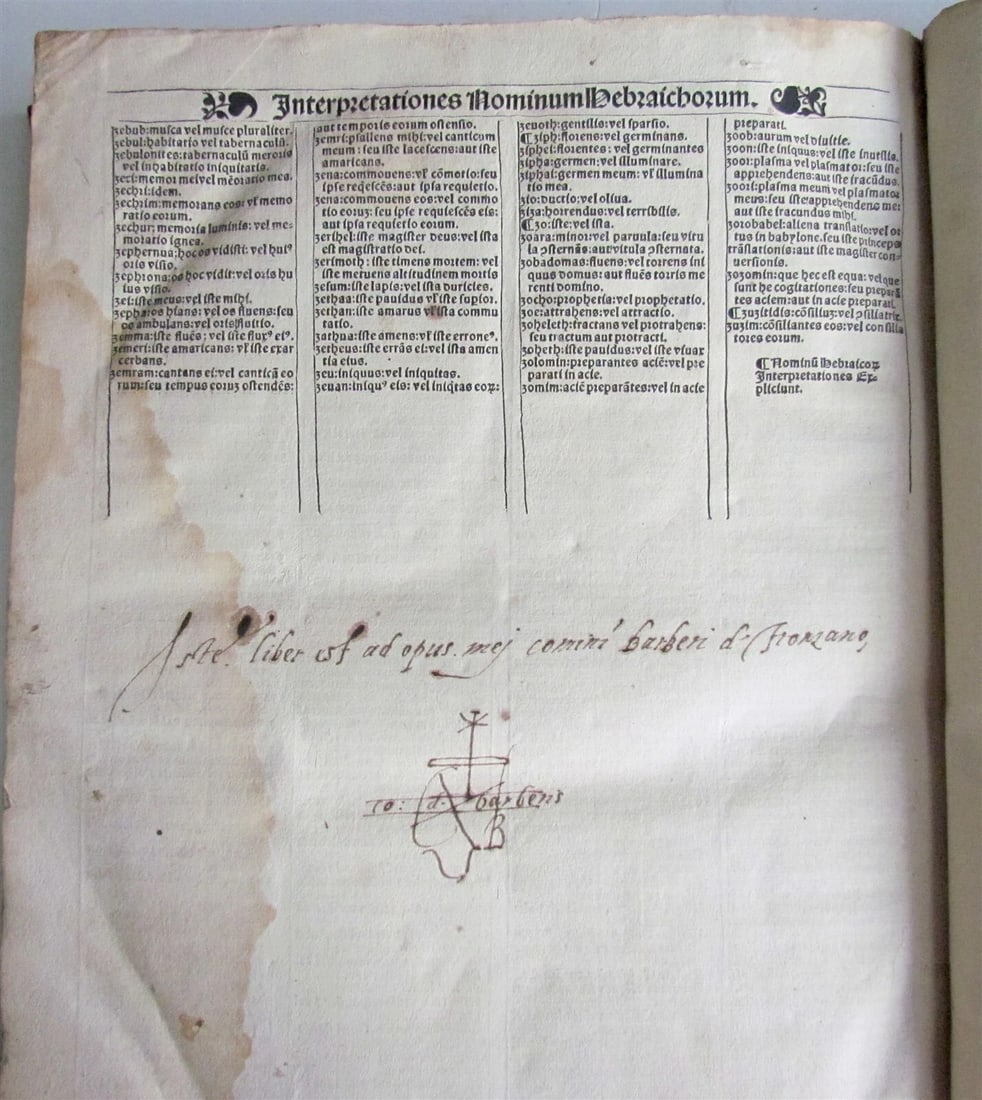 Interpretationes Nominum Hebraichorum.
zebub: musca vel musce pluraliter.
zebul: habitatio vel tabernaculũ.
zebulonites: tabernaculũ meroris
vel inhabitatio iniquitatis.
zeci: memor mei vel mẽoratio mea.
zechri: idem.
zechrim: memorans eos: vl' memo
ratio eorum.
zechur: memoria luminis: vel me-
moratio ignea.
zephernua: hoc os vidisti: vel hui⁹
oris visio.
zephrona: os hoc vidit: vel oris hu
ius visio.
zei: iste meus: vel iste mihi.
zepharos hians: vel os fluens: seu
os ambulans: vel oris fluitio.
zemma: iste fluẽs: vel iste flux⁹ ei⁹.
zemeri: iste amaricans: vl' iste exar
cerbans.
zemram: cantans ei: vel canticũ eo
rum: seu tempus eorum ostendẽs:
aut temporis eorum ostensio.
zemri: psallens mihi: vel canticum
meum: seu iste lacescens: aut iste
amaricans.
zena: commouens: vl' cõmotio: seu
ipse reqescẽs: aut ipsa requietio.
zena: commouens eos: vel commo
tio eorum: seu ipse requiescẽs eis:
aut ipsa requietio eorum.
zerihel: iste magister deus: vel ista
est magistratio dei.
zerimoth: iste timens mortem: vel
iste metuens altitudinem mortis
zesum: iste lapis: vel ista duricies.
zethaa: iste pauidus vl' iste stupor.
zethan: iste amarus vl' ista commu
tatio.
zathua: iste amens: vl' iste errone⁹.
zetheus: iste errãs ei: vel ista amen
tia eius.
zeu: iniquus: vel iniquitas.
zeuan: iniqu⁹ eis: vel iniqtas eoꝝ:
zeuoth: gentilis: vel sparsio.
¶ziph: florens: vel germinans.
ziphei: florentes: vel germinantes
zipha: germen: vel illuminare.
ziphai: germen meum: vl' illumina
tio mea.
zio: ductio: vel oliua.
ziza: horrendus: vel terribilis.
¶zo: iste: vel ista.
zoara: minor: vel paruula: seu vitu
la ꝯsternãs: aut vitula ꝯsternata.
zobadomas: fluens: vel torrens ini
quus domus: aut fluẽs torris me
renti domino.
zocho: prophetia: vel prophetatio.
zoe: attrahens: vel attractio.
zoheleth: tractans vel protrahens:
seu tractum aut protracti.
zoheth: iste pauidus: vel iste viuax
zolomin: preparantes aciẽ: vel pre
parati in acie.
zomim: aciẽ preparãtes: vel in acie
preparati.
zoob: aurum vel diuitie.
zoon: iste iniquus: vel iste inutilis.
zoor: plasma vel plasmator: seu iste
apprehendens: aut iste iracũdus.
zoori: plasma meum vel plasmator
meus: seu iste apprehendens me:
aut iste iracundus mihi.
zorobabel: aliena translatio: vel or
tus in babylone. seu iste princeps
trãslationis: aut iste magister con-
uersionis.
zozomin: que hec est equa: vel que
sunt he cogitationes: seu preparã
tes aciem: aut in acie preparati.
¶zuzitidis: cõsiliuz: vel ꝯsiliatrix.
zuzim: cõsiliantes eos: vel consilia
tores eorum.
¶Nominũ Hebraicoꝝ
Interpretationes Ex-
pliciunt.
Iste liber est ad opus mej comini barberi d
barberis
B